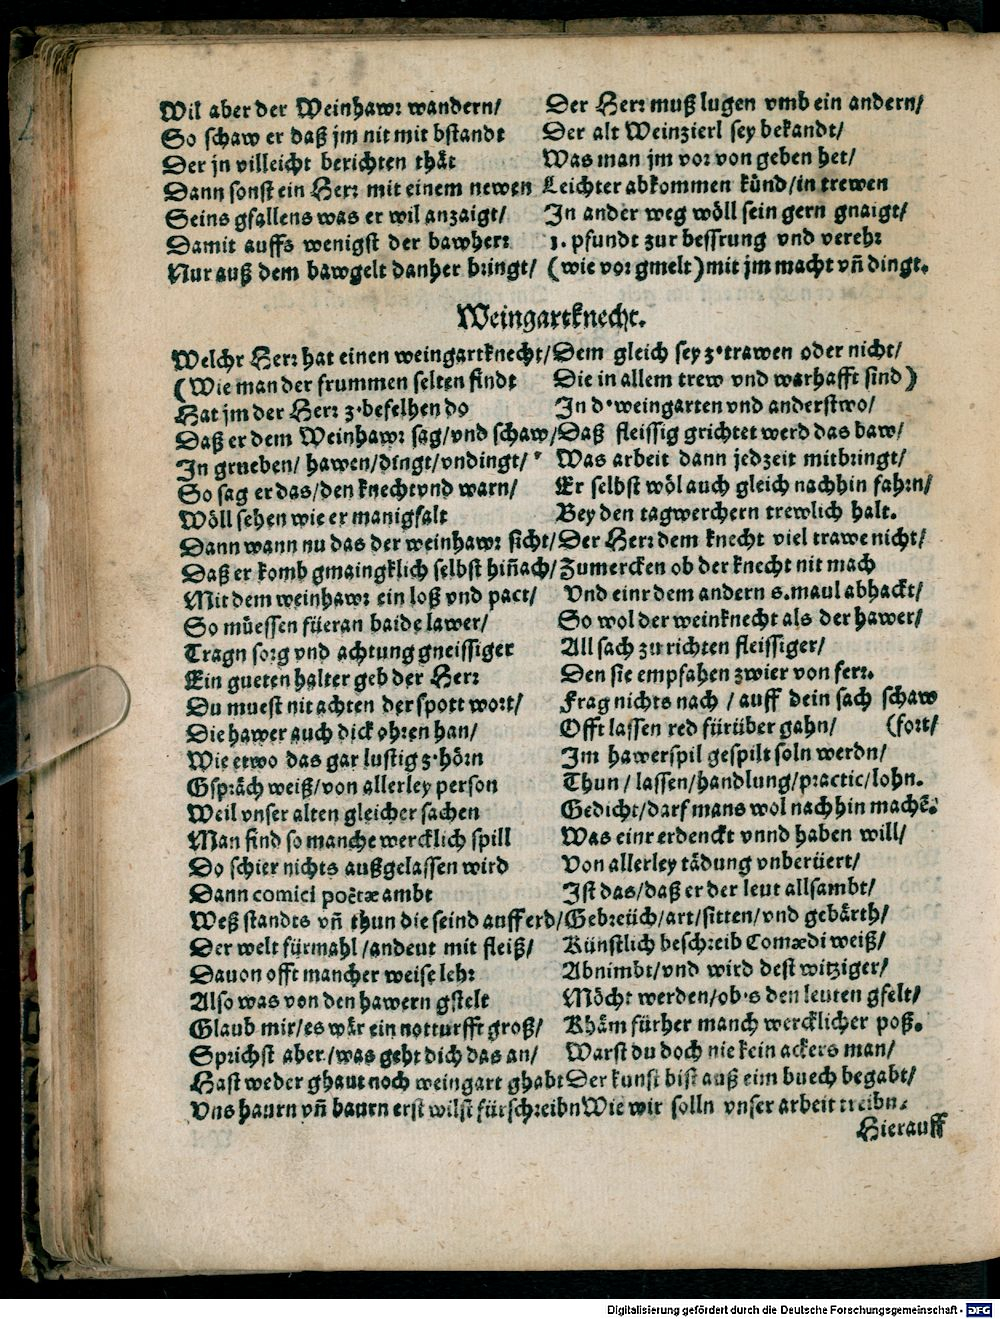 Wil aber der Weinhawr wandern/ Der Herr muß lugen vmb ein andern/
So schaw er daß jm nit mit bstandt Der alt Weinzierl sey bekandt/
Der jn villeicht berichten thät Was man jm vor von geben het/
Dann sonst ein Herr mit einem newen Leichter abkommen künd/in trewen
Seins gfallens was er wil anzaigt/ In ander weg wöll sein gern gnaigt/
Damit auffs wenigst der bawherr 1. pfundt zur bessrung vnd verehr
Nur auß dem bawgelt danher bringt/ (wie vor gmelt) mit jm macht vn̄ dingt.
Weingartknecht.
Welchr Herr hat einen weingartknecht/ Dem gleich sey z'trawen oder nicht/
(Wie man der frummen selten findt Die in allem trew vnd warhafft sind)
Hat jm der Herr z'befelhen do In d'weingarten vnd anderstwo/
Daß er dem Weinhawr sag/vnd schaw/ Daß fleissig grichtet werd das baw/
In grueben/ hawen/dingt/vndingt/ Was arbeit dann jedzeit mitbringt/
So sag er das/den knecht vnd warn/ Er selbst wöl auch gleich nachhin fahrn/
Wöll sehen wie er manigfalt Bey den tagwerchern trewlich halt.
Dann wann nu das der weinhawr sicht/ Der Herr dem knecht viel trawe nicht/
Daß er komb gmaingklich selbst hin̄ach/ Zumercken ob der knecht nit mach
Mit dem weinhawr ein loß vnd pact/ Vnd einr dem andern s.maul abhackt/
So müessen füeran baide lawer/ So wol der weinknecht als der hawer/
Tragn sorg vnd achtung gneissiger All sach zu richten fleissiger/
Ein gueten halter geb der Herr Den sie empfahen zwier von ferr.
Du muest nit achten der spott wort/ Frag nichts nach / auff dein sach schaw
Die hawer auch dick ohren han/ Offt lassen red fürüber gahn/ (fort/
Wie etwo das gar lustig z'hörn Im hawerspil gespilt soln werdn/
Gspräch weiß/von allerley person Thun / lassen/handlung/practic/lohn.
Weil vnser alten gleicher sachen Gedicht/darf mans wol nachhin machē.
Man find so manche wercklich spill Was einr erdenckt vnnd haben will/
Do schier nichts außgelassen wird Von allerley tädung vnberüert/
Dann comici poëtæ ambt Ist das/daß er der leut allsambt/
Weß standts vn̄ thun die seind auff erd/ Gebreüch/art/sitten/vnd gebärth/
Der welt fürmahl/andeut mit fleiß/ Künstlich beschreib Comædi weiß/
Dauon offt mancher weise lehr Abnimbt/vnd wird dest witziger/
Also was von den hawern gstelt Möcht werden/ob's den leuten gfelt/
Glaub mir/es wär ein notturfft groß/ Khäm fürher manch wercklicher poß.
Sprichst aber/was geht dich das an/ Warst du doch nie kein ackers man/
Hast weder ghaut noch weingart ghabt Der kunst bist auß eim buech begabt/
Vns haurn vn̄ baurn erst wilst fürschreibn Wie wir solln vnser arbeit treibn.
Hierauff
Digitalisierung gefördert durch die Deutsche Forschungsgemeinschaft - DFG